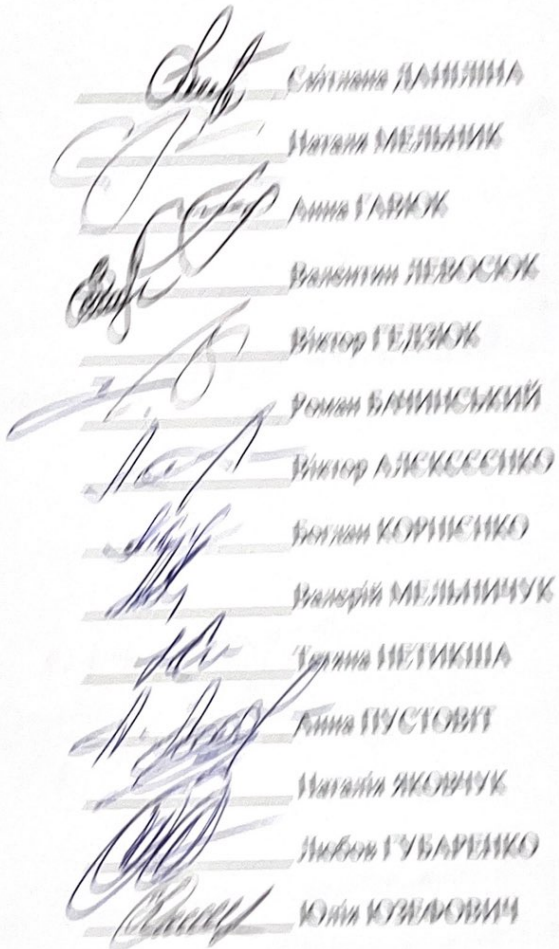 Світлана ДАНИЛІНА
Наталя МЕЛЬНИК
Анна ГАВЮК
Валентин ЛЕВОСЮК
Віктор ГЕДЗЮК
Роман БАЧИНСЬКИЙ
Віктор АЛЄКСЄЄНКО
Богдан КОРНІЄНКО
Валерій МЕЛЬНИЧУК
Тетяна
Анна ПУСТОВІТ
Наталія ЯКОВЧУК
Любов ГУБАРЕНКО
Юлія ЮЗЕФОВИЧ